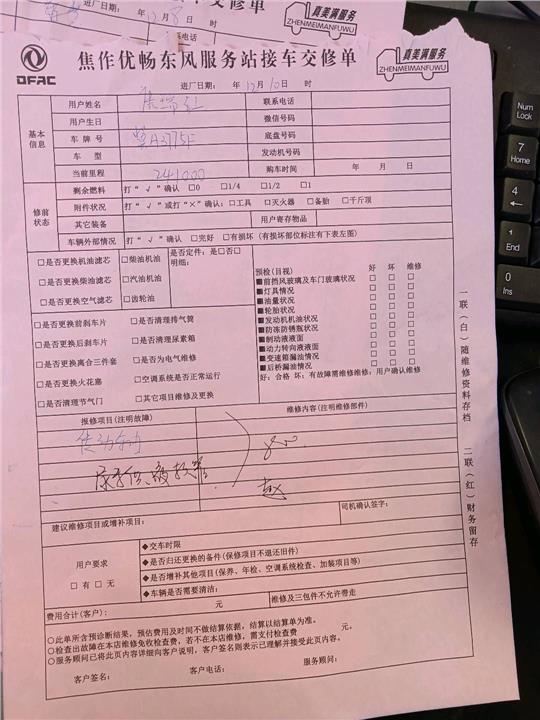 进厂日期: 年 12 月 8 日 时
真美满服务
ZHENMEIMANFUWU
DFAC
焦作优畅东风服务站接车交修单
真美满服务
ZHENMEIMANFUWU
进厂日期: 年 12 月 10 日 时
基本信息
用户姓名 联系电话
用户生日 微信号码
车 牌 号 底盘号码
车 型 发动机号码
当前里程 241000 购车时间 年 月 日
修前状态
剩余燃料 打“√”确认 □0 □1/4 □1/2 □1
附件状况 打“√”或打“×”确认:□工具 □灭火器 □备胎 □千斤顶
其它装备 用户寄存物品
车辆外部情况 打“√”确认 □完好 □有损坏 (有损坏部位标注有下表左图)
□是否更换机油滤芯 □柴油机油 是否定件: 是□否□
明细:
□是否更换柴油滤芯 □汽油机油
□是否更换空气滤芯 □齿轮油
□是否更换前刹车片 □是否清理排气筒
□是否更换后刹车片 □是否清理尿素箱
□是否更换离合三件套 □是否为电气维修
□是否更换火花塞 □空调系统是否正常运行
□是否清理节气门 □其它项目维修及更换
预检(目视) 好 坏 维修
■前挡风玻璃及车门玻璃状况 □ □ □
■灯具情况 □ □ □
■油量状况 □ □ □
■轮胎状况 □ □ □
■发动机机油状况 □ □ □
■防冻防锈瓶状况 □ □ □
■制动液液面 □ □ □
■动力转向液液面 □ □ □
■变速箱漏油情况 □ □ □
■后桥漏油情况 □ □ □
好: 合格 坏: 有故障需维修维修: 用户确认维修
报修项目(注明故障) 维修内容(注明维修部件)
赵
建议维修项目或增补项目: 司机确认签字:
用户要求
□ 有 □ 无
◆交车时限
◆是否归还更换的备件(保修项目不退还旧件)
◆是否增补其他项目(保养、年检、空调系统检查、加装项目等)
◆车辆是否需要清洁:
费用合计(客户): 元 维修及三包件不允许带走
○此单所含预诊断结果, 预估费用及时间不做结算依据, 结算以结算单为准。
○检查出故障在本店维修免收检查费, 若不在本店维修, 需支付检查费 元。
○服务顾问已将此页内容详细向客户说明, 客户签名则表示已理解并接受此页内容。
客户签名: 客户电话: 服务顾问:
一联(白)随维修资料存档 二联(红)财务留存
Num
Lock
7
Home
4
1
End
0
Ins